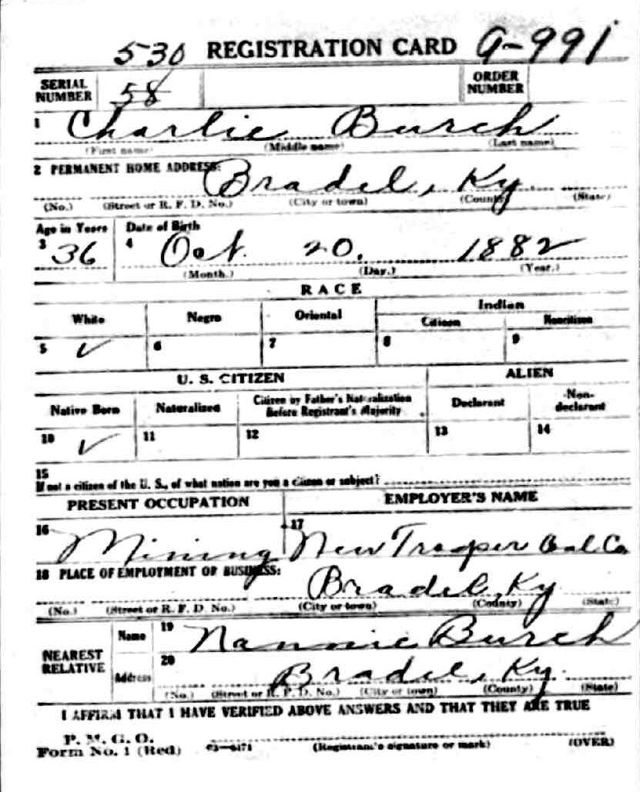 530 REGISTRATION CARD A-991
SERIAL NUMBER 58 ORDER NUMBER
1 Charlie Burch
(First name) (Middle name) (Last name)
2 PERMANENT HOME ADDRESS:
Bradel, Ky
(No.) (Street or R. F. D. No.) (City or town) (County) (State)
Age in Years Date of Birth
3 36 4 Oct. 20. 1882
(Month.) (Day.) (Year.)
RACE
White Negro Oriental Indian
Citizen Noncitizen
5 ✓ 6 7 8 9
U. S. CITIZEN ALIEN
Native Born Naturalized Citizen by Father's Naturalization Before Registrant's Majority Declarant Non-declarant
10 ✓ 11 12 13 14
15
If not a citizen of the U. S., of what nation are you a citizen or subject?
PRESENT OCCUPATION EMPLOYER'S NAME
16 Mining 17 New Trosper Coal Co
18 PLACE OF EMPLOYMENT OR BUSINESS:
Bradel, Ky
(No.) (Street or R. F. D. No.) (City or town) (County) (State)
NEAREST RELATIVE Name 19 Nannie Burch
Address 20 Bradel, Ky.
(No.) (Street or R. F. D. No.) (City or town) (County) (State)
I AFFIRM THAT I HAVE VERIFIED ABOVE ANSWERS AND THAT THEY ARE TRUE
P. M. G. O.
Form No. 1 (Red) 03—6171 (Registrant's signature or mark) (OVER)